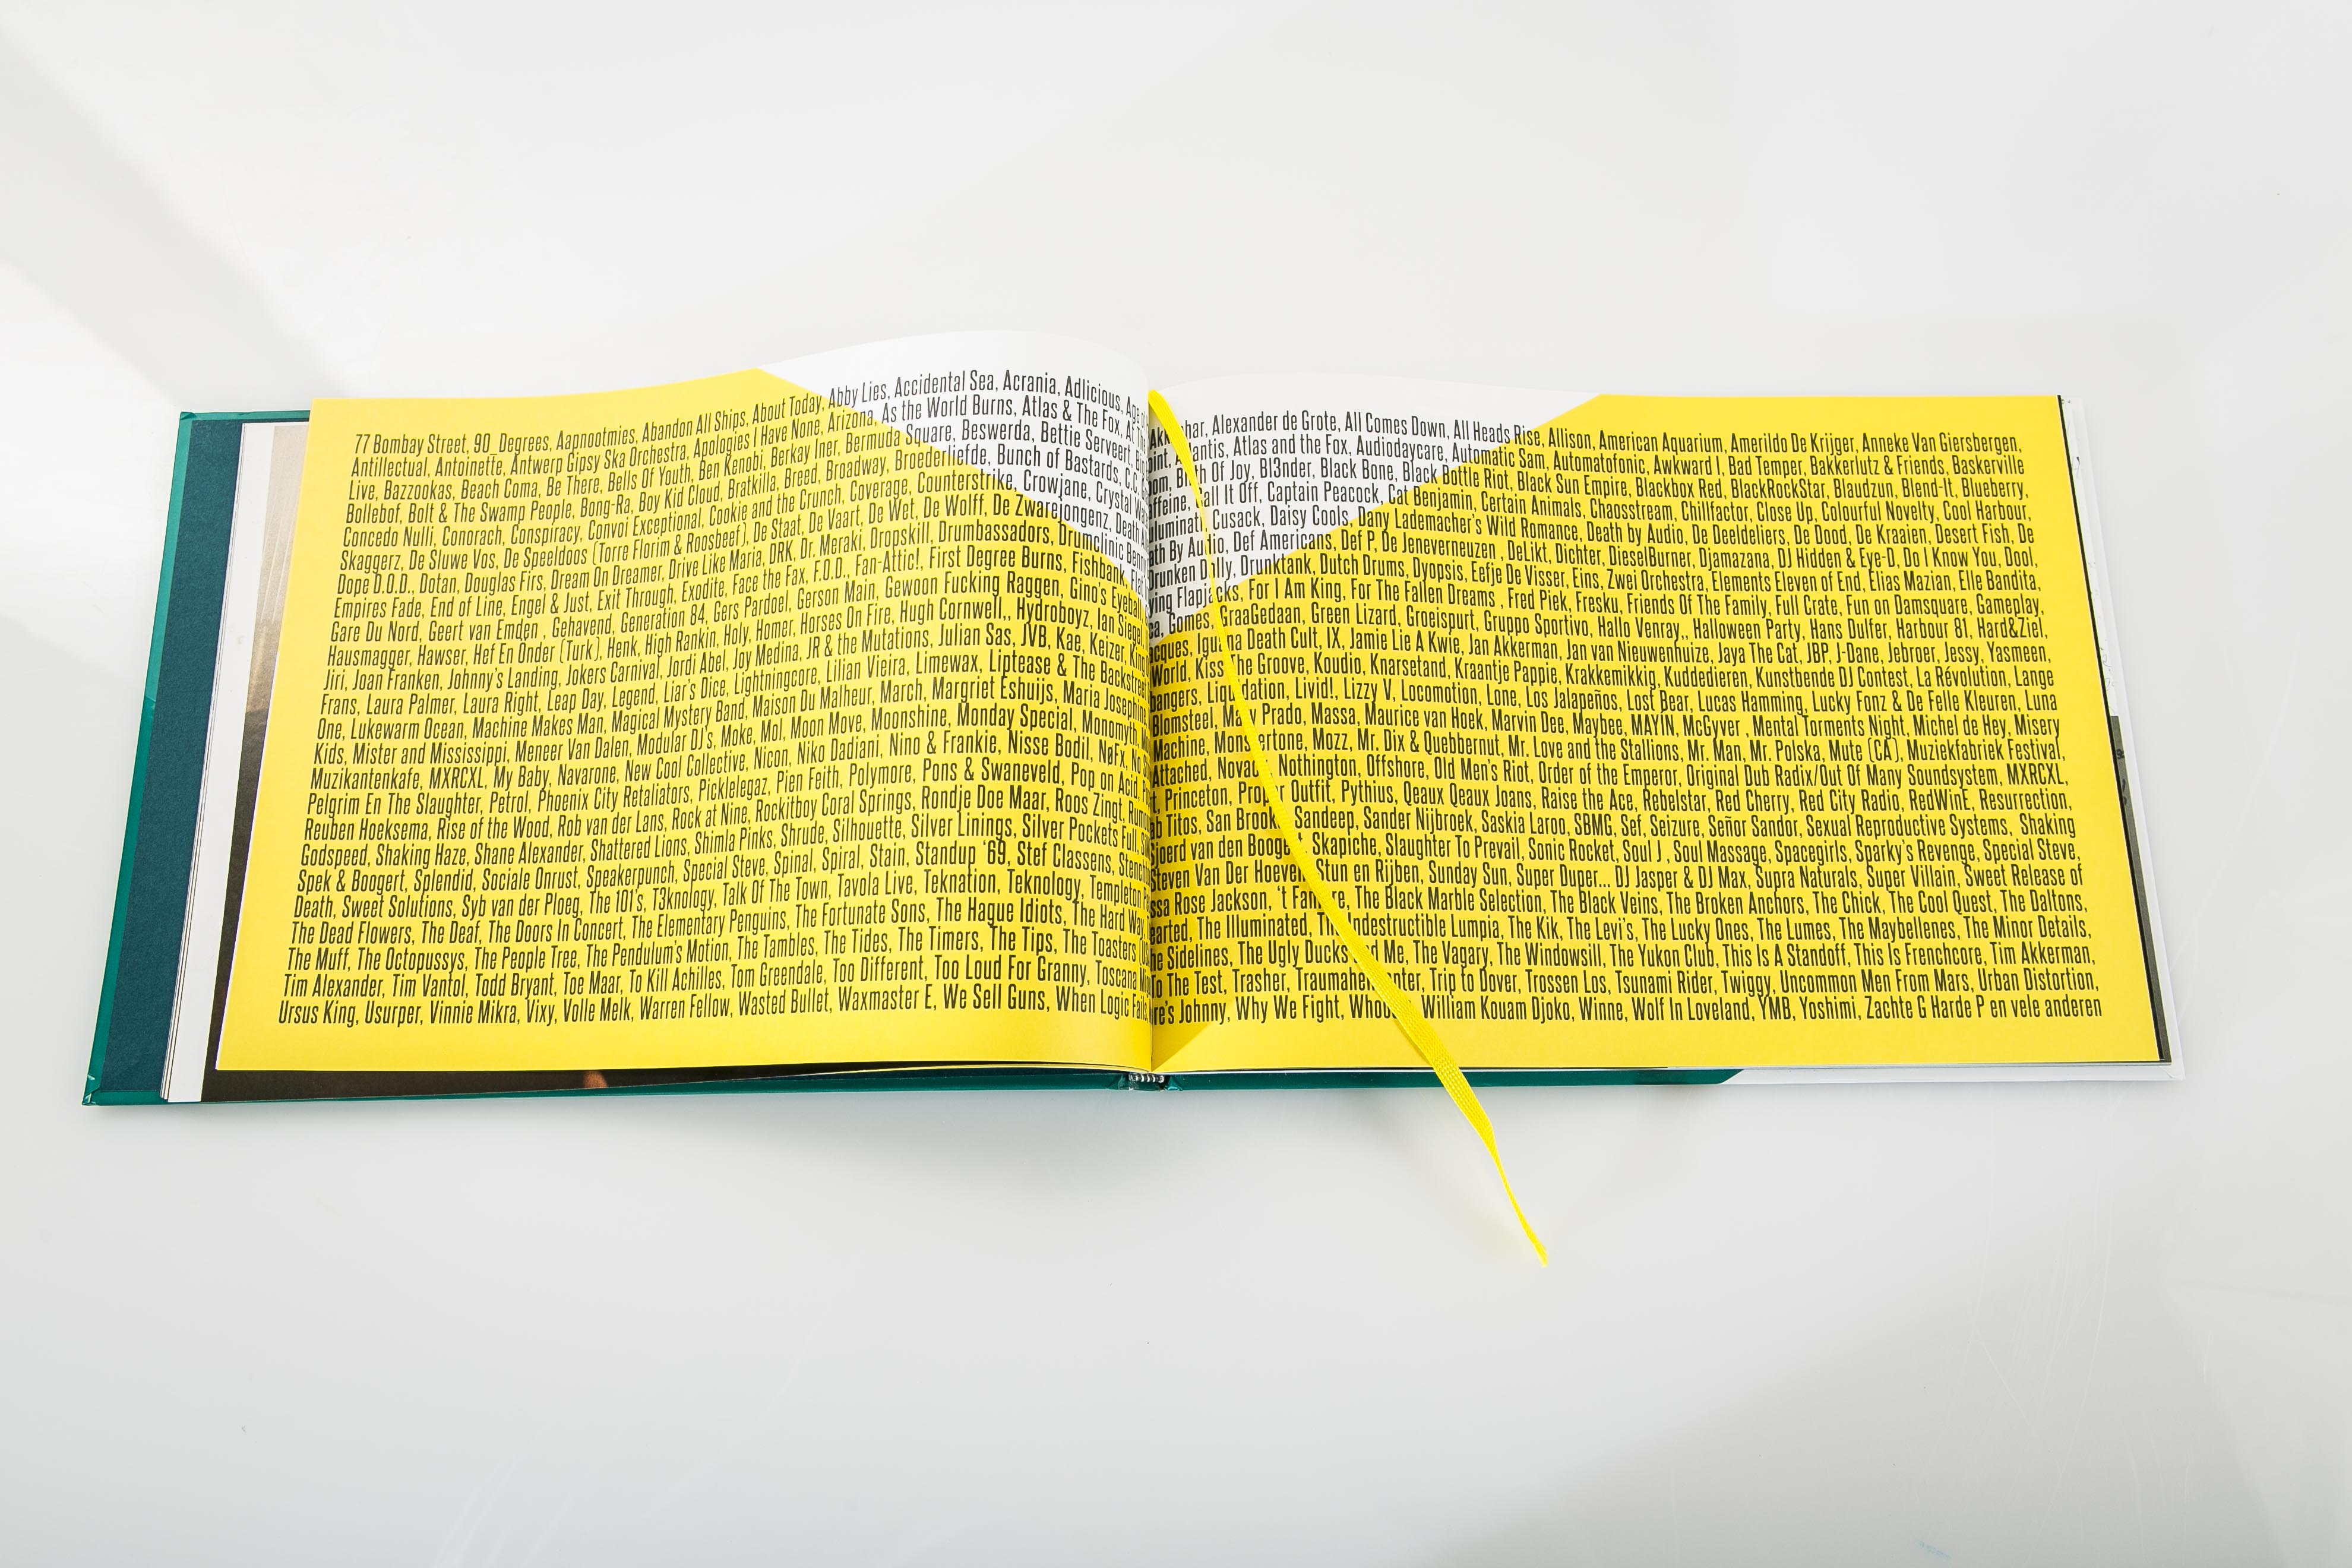 77 Bombay Street, 90_Degrees, Aapnootmies, Abandon All Ships, About Today, Abby Lies, Accidental Sea, Acrania, Adlicious, Alexander de Grote, All Comes Down, All Heads Rise, Allison, American Aquarium, Amerildo De Krijger, Anneke Van Giersbergen,
Antillectual, Antoinette, Antwerp Gipsy Ska Orchestra, Apologies I Have None, Arizona, As the World Burns, Atlas & The Fox, Atlantis, Atlas and the Fox, Audiodaycare, Automatic Sam, Automatofonic, Awkward I, Bad Temper, Bakkerlutz & Friends, Baskerville
Live, Bazzookas, Beach Coma, Be There, Bells Of Youth, Ben Kenobi, Berkay Iner, Bermuda Square, Beswerda, Bettie Serveert, Birth Of Joy, Bl3nder, Black Bone, Black Bottle Riot, Black Sun Empire, Blackbox Red, BlackRockStar, Blaudzun, Blend-It, Blueberry,
Bollebof, Bolt & The Swamp People, Bong-Ra, Boy Kid Cloud, Bratkilla, Breed, Broadway, Broederliefde, Bunch of Bastards, Call It Off, Captain Peacock, Cat Benjamin, Certain Animals, Chaosstream, Chillfactor, Close Up, Colourful Novelty, Cool Harbour,
Concedo Nulli, Conorach, Conspiracy, Convoi Exceptional, Cookie and the Crunch, Coverage, Counterstrike, Crowjane, Crystal Cusack, Daisy Cools, Dany Lademacher's Wild Romance, Death by Audio, De Deeldeliers, De Dood, De Kraaien, Desert Fish, De
Skaggerz, De Sluwe Vos, De Speeldoos (Torre Florim & Roosbeef), De Staat, De Vaart, De Wet, De Wolff, De Zwarejongenz, Death By Audio, Def Americans, Def P, De Jeneverneuzen , DeLikt, Dichter, DieselBurner, Djamazana, DJ Hidden & Eye-D, Do I Know You, Dool,
Dope D.O.D., Dotan, Douglas Firs, Dream On Dreamer, Drive Like Maria, DRK, Dr. Meraki, Dropskill, Drumbassadors, Drumclinic Drunken Dolly, Drunktank, Dutch Drums, Dyopsis, Eefje De Visser, Eins, Zwei Orchestra, Elements Eleven of End, Elias Mazian, Elle Bandita,
Empires Fade, End of Line, Engel & Just, Exit Through, Exodite, Face the Fax, F.O.D., Fan-Attic!, First Degree Burns, Fishbank, Flying Flapjacks, For I Am King, For The Fallen Dreams , Fred Piek, Fresku, Friends Of The Family, Full Crate, Fun on Damsquare, Gameplay,
Gare Du Nord, Geert van Emden , Gehavend, Generation 84, Gers Pardoel, Gerson Main, Gewoon Fucking Raggen, Gino's Gomes, GraaGedaan, Green Lizard, Groeispurt, Gruppo Sportivo, Hallo Venray,, Halloween Party, Hans Dulfer, Harbour 81, Hard&Ziel,
Hausmagger, Hawser, Hef En Onder (Turk), Henk, High Rankin, Holy, Homer, Horses On Fire, Hugh Cornwell,, Hydroboyz, Ian Iguana Death Cult, IX, Jamie Lie A Kwie, Jan Akkerman, Jan van Nieuwenhuize, Jaya The Cat, JBP, J-Dane, Jebroer, Jessy, Yasmeen,
Jiri, Joan Franken, Johnny's Landing, Jokers Carnival, Jordi Abel, Joy Medina, JR & the Mutations, Julian Sas, JVB, Kae, Keizer, World, Kiss The Groove, Koudio, Knarsetand, Kraantje Pappie, Krakkemikkig, Kuddedieren, Kunstbende DJ Contest, La Révolution, Lange
Frans, Laura Palmer, Laura Right, Leap Day, Legend, Liar's Dice, Lightningcore, Lilian Vieira, Limewax, Liptease & The Liquidation, Livid!, Lizzy V, Locomotion, Lone, Los Jalapeños, Lost Bear, Lucas Hamming, Lucky Fonz & De Felle Kleuren, Luna
One, Lukewarm Ocean, Machine Makes Man, Magical Mystery Band, Maison Du Malheur, March, Margriet Eshuijs, Maria Blomsteel, Mary Prado, Massa, Maurice van Hoek, Marvin Dee, Maybee, MAYIN, McGyver , Mental Torments Night, Michel de Hey, Misery
Kids, Mister and Mississippi, Meneer Van Dalen, Modular DJ's, Moke, Mol, Moon Move, Moonshine, Monday Special, Monomyth Machine, Monstertone, Mozz, Mr. Dix & Quebbernut, Mr. Love and the Stallions, Mr. Man, Mr. Polska, Mute (CA), Muziekfabriek Festival,
Muzikantenkafe, MXRCXL, My Baby, Navarone, New Cool Collective, Nicon, Niko Dadiani, Nino & Frankie, Nisse Bodil, NøFx, No Attached, Novack, Nothington, Offshore, Old Men's Riot, Order of the Emperor, Original Dub Radix/Out Of Many Soundsystem, MXRCXL,
Pelgrim En The Slaughter, Petrol, Phoenix City Retaliators, Picklelegaz, Pien Feith, Polymore, Pons & Swaneveld, Pop on Acid, Princeton, Proper Outfit, Pythius, Qeaux Qeaux Joans, Raise the Ace, Rebelstar, Red Cherry, Red City Radio, RedWinE, Resurrection,
Reuben Hoeksema, Rise of the Wood, Rob van der Lans, Rock at Nine, Rockitboy Coral Springs, Rondje Doe Maar, Roos Zingt, Titos, San Brooks, Sandeep, Sander Nijbroek, Saskia Laroo, SBMG, Sef, Seizure, Señor Sandor, Sexual Reproductive Systems, Shaking
Godspeed, Shaking Haze, Shane Alexander, Shattered Lions, Shimla Pinks, Shrude, Silhouette, Silver Linings, Silver Pockets Full, Sjoerd van den Boogert, Skapiche, Slaughter To Prevail, Sonic Rocket, Soul J , Soul Massage, Spacegirls, Sparky's Revenge, Special Steve,
Spek & Boogert, Splendid, Sociale Onrust, Speakerpunch, Special Steve, Spinal, Spiral, Stain, Standup '69, Stef Classens, Steven Van Der Hoeven, Stun en Rijben, Sunday Sun, Super Duper... DJ Jasper & DJ Max, Supra Naturals, Super Villain, Sweet Release of
Death, Sweet Solutions, Syb van der Ploeg, The 101's, T3knology, Talk Of The Town, Tavola Live, Teknation, Teknology, Templeton Rose Jackson, 't Fanfare, The Black Marble Selection, The Black Veins, The Broken Anchors, The Chick, The Cool Quest, The Daltons,
The Dead Flowers, The Deaf, The Doors In Concert, The Elementary Penguins, The Fortunate Sons, The Hague Idiots, The Hard The Illuminated, The Indestructible Lumpia, The Kik, The Levi's, The Lucky Ones, The Lumes, The Maybellenes, The Minor Details,
The Muff, The Octopussys, The People Tree, The Pendulum's Motion, The Tambles, The Tides, The Timers, The Tips, The Toasters The Sidelines, The Ugly Ducks and Me, The Vagary, The Windowsill, The Yukon Club, This Is A Standoff, This Is Frenchcore, Tim Akkerman,
Tim Alexander, Tim Vantol, Todd Bryant, Toe Maar, To Kill Achilles, Tom Greendale, Too Different, Too Loud For Granny, Toscana To The Test, Trasher, Traumahelikopter, Trip to Dover, Trossen Los, Tsunami Rider, Twiggy, Uncommon Men From Mars, Urban Distortion,
Ursus King, Usurper, Vinnie Mikra, Vixy, Volle Melk, Warren Fellow, Wasted Bullet, Waxmaster E, We Sell Guns, When Logic Fails Johnny, Why We Fight, William Kouam Djoko, Winne, Wolf In Loveland, YMB, Yoshimi, Zachte G Harde P en vele anderen